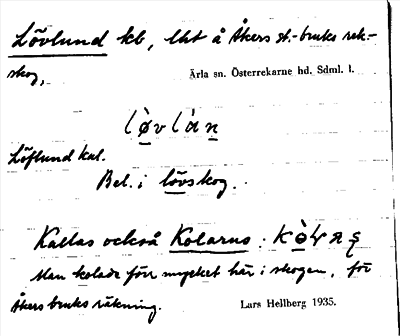 Lövlund kb, lht å Åkers st.-bruks rek-
skog,
Ärla sn. Österrekarne hd. Sdml. l.
Löflund kal.
Bel. i lövskog.
Kallas också Kolarns:
Man kolade förr mycket här i skogen, för
Åkers bruks räkning.
Lars Hellberg 1935.